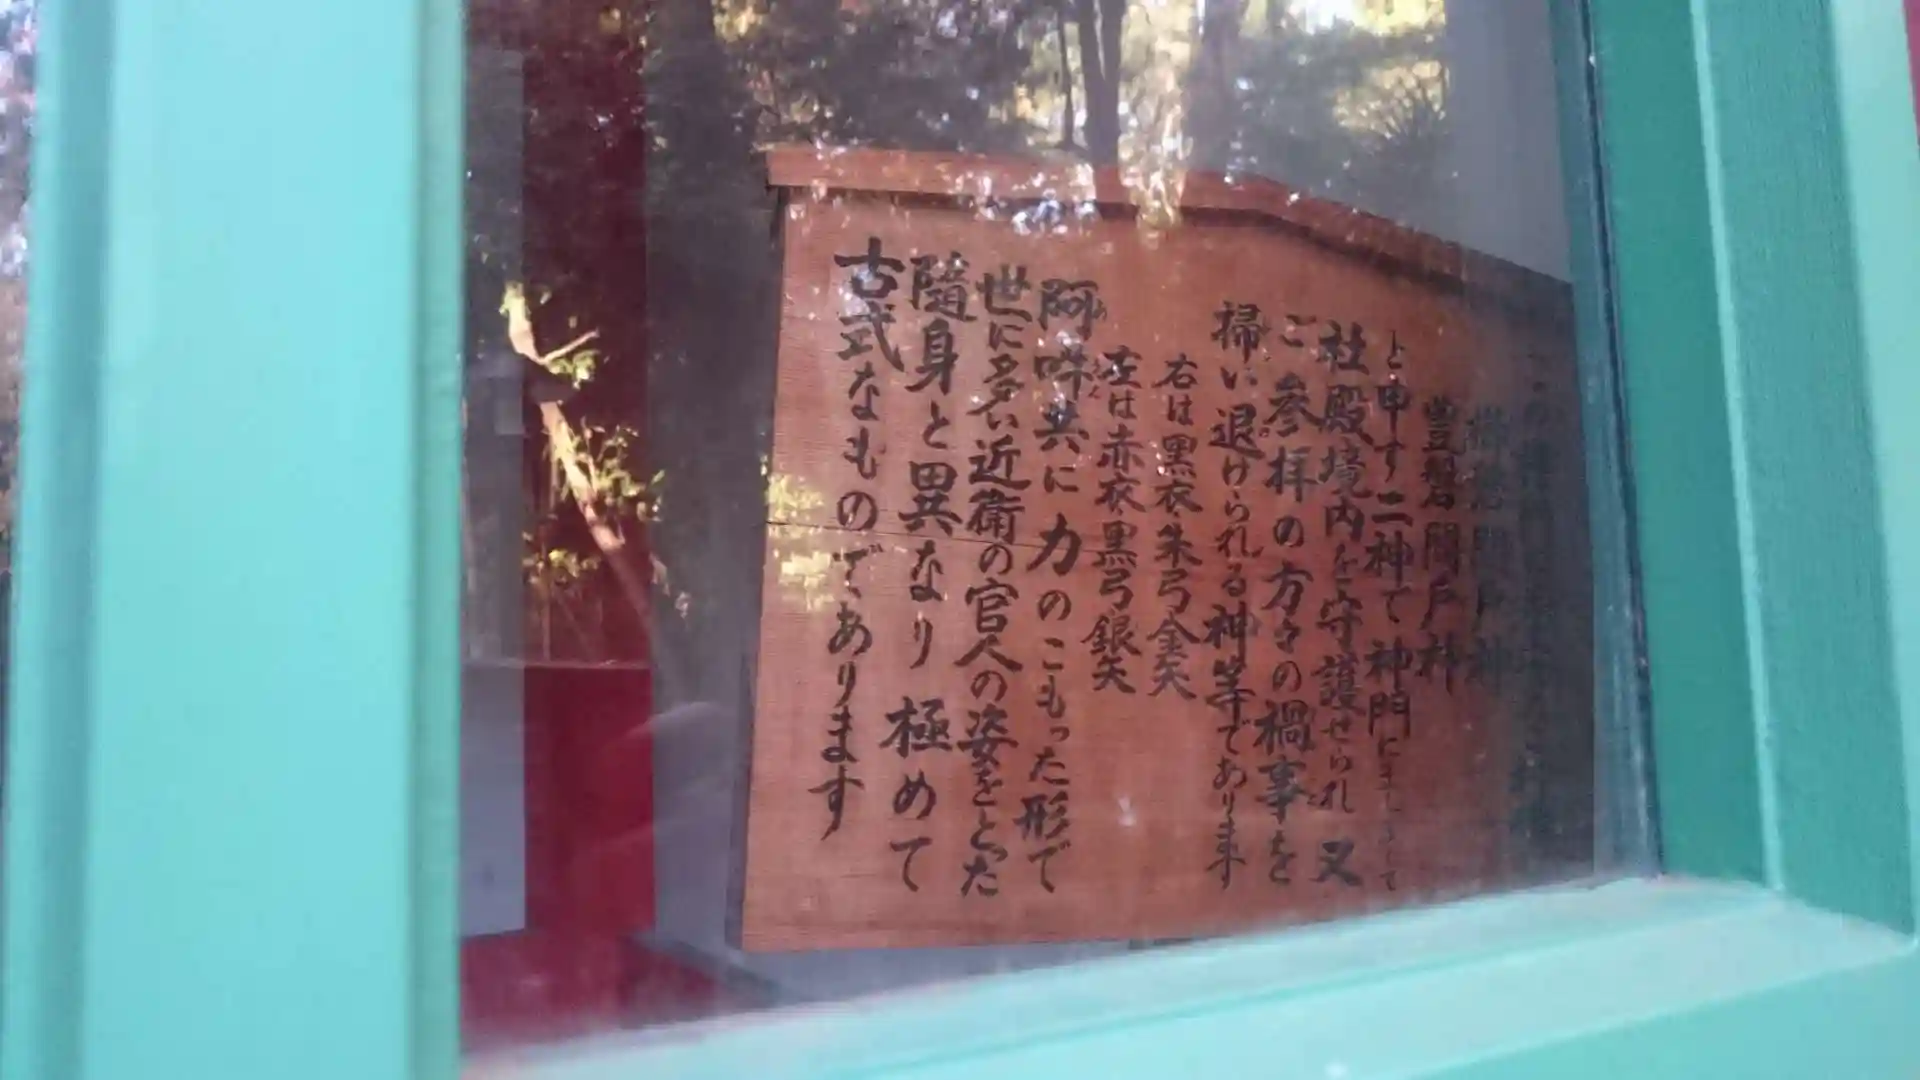 豊磐間戸神
と申す二神で神門にましまして
社殿境内を守護せられ又
ご参拝の方々の禍事を
掃い退けられる神等であります
右は黒衣朱弓金矢
左は赤衣黒弓銀矢
阿吽共に力のこもった形で
世に多い近衛の官人の姿をとった
隨身と異なり極めて
古式なものであります